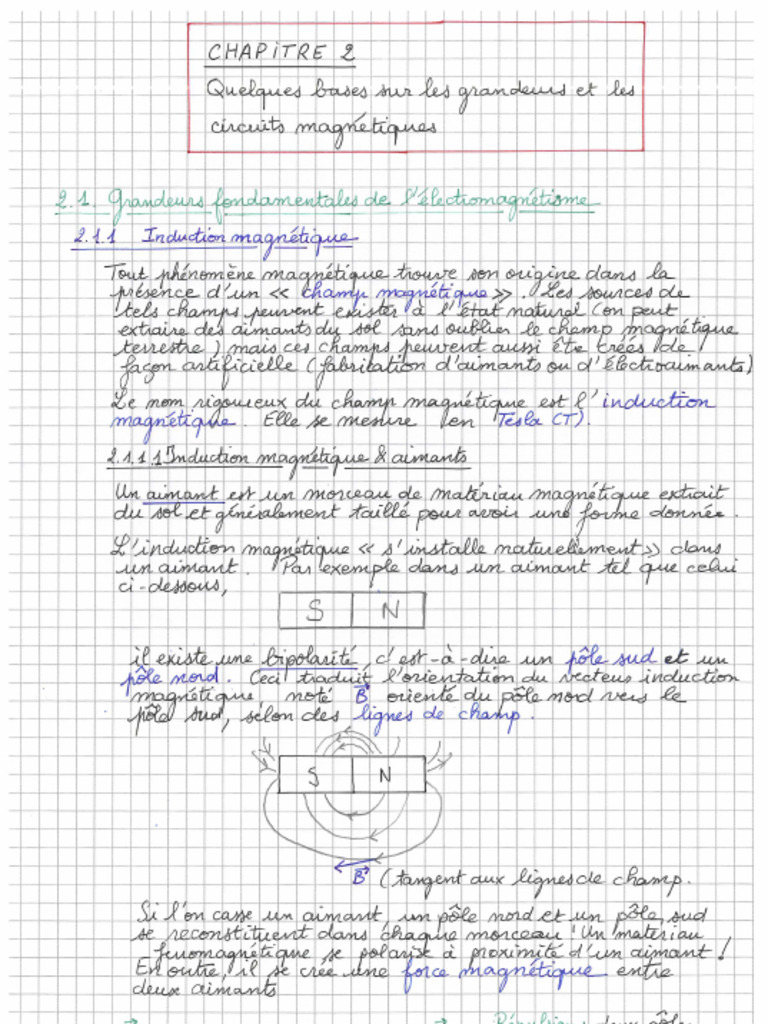 CHAPITRE 2
Quelques bases sur les grandeurs et les
circuits magnétiques
2.1. Grandeurs fondamentales de l'électromagnétisme
2.1.1 Induction magnétique
Tout phénomène magnétique trouve son origine dans la
présence d'un « champ magnétique ». Les sources de
tels champs peuvent exister à l'état naturel (on peut
extraire des aimants du sol sans oublier le champ magnétique
terrestre) mais ces champs peuvent aussi être créés de
façon artificielle (fabrication d'aimants ou d'électroaimants)
Le nom rigoureux du champ magnétique est l'induction
magnétique. Elle se mesure en Tesla (T).
2.1.1.1 Induction magnétique & aimants
Un aimant est un morceau de matériau magnétique extrait
du sol et généralement taillé pour avoir une forme donnée.
L'induction magnétique « s'installe naturellement » dans
un aimant. Par exemple dans un aimant tel que celui
ci-dessous,
S N
il existe une bipolarité, c'est-à-dire un pôle sud et un
pôle nord. Ceci traduit l'orientation du vecteur induction
magnétique, noté B⃗ orienté du pôle nord vers le
pôle sud, selon des lignes de champ.
S N
B⃗ (tangent aux lignes de champ.
Si l'on casse un aimant, un pôle nord et un pôle sud
se reconstituent dans chaque morceau ! Un matériau
ferromagnétique se polarise à proximité d'un aimant !
En outre, il se crée une force magnétique entre
deux aimants
→ → Répulsion : deux pôles